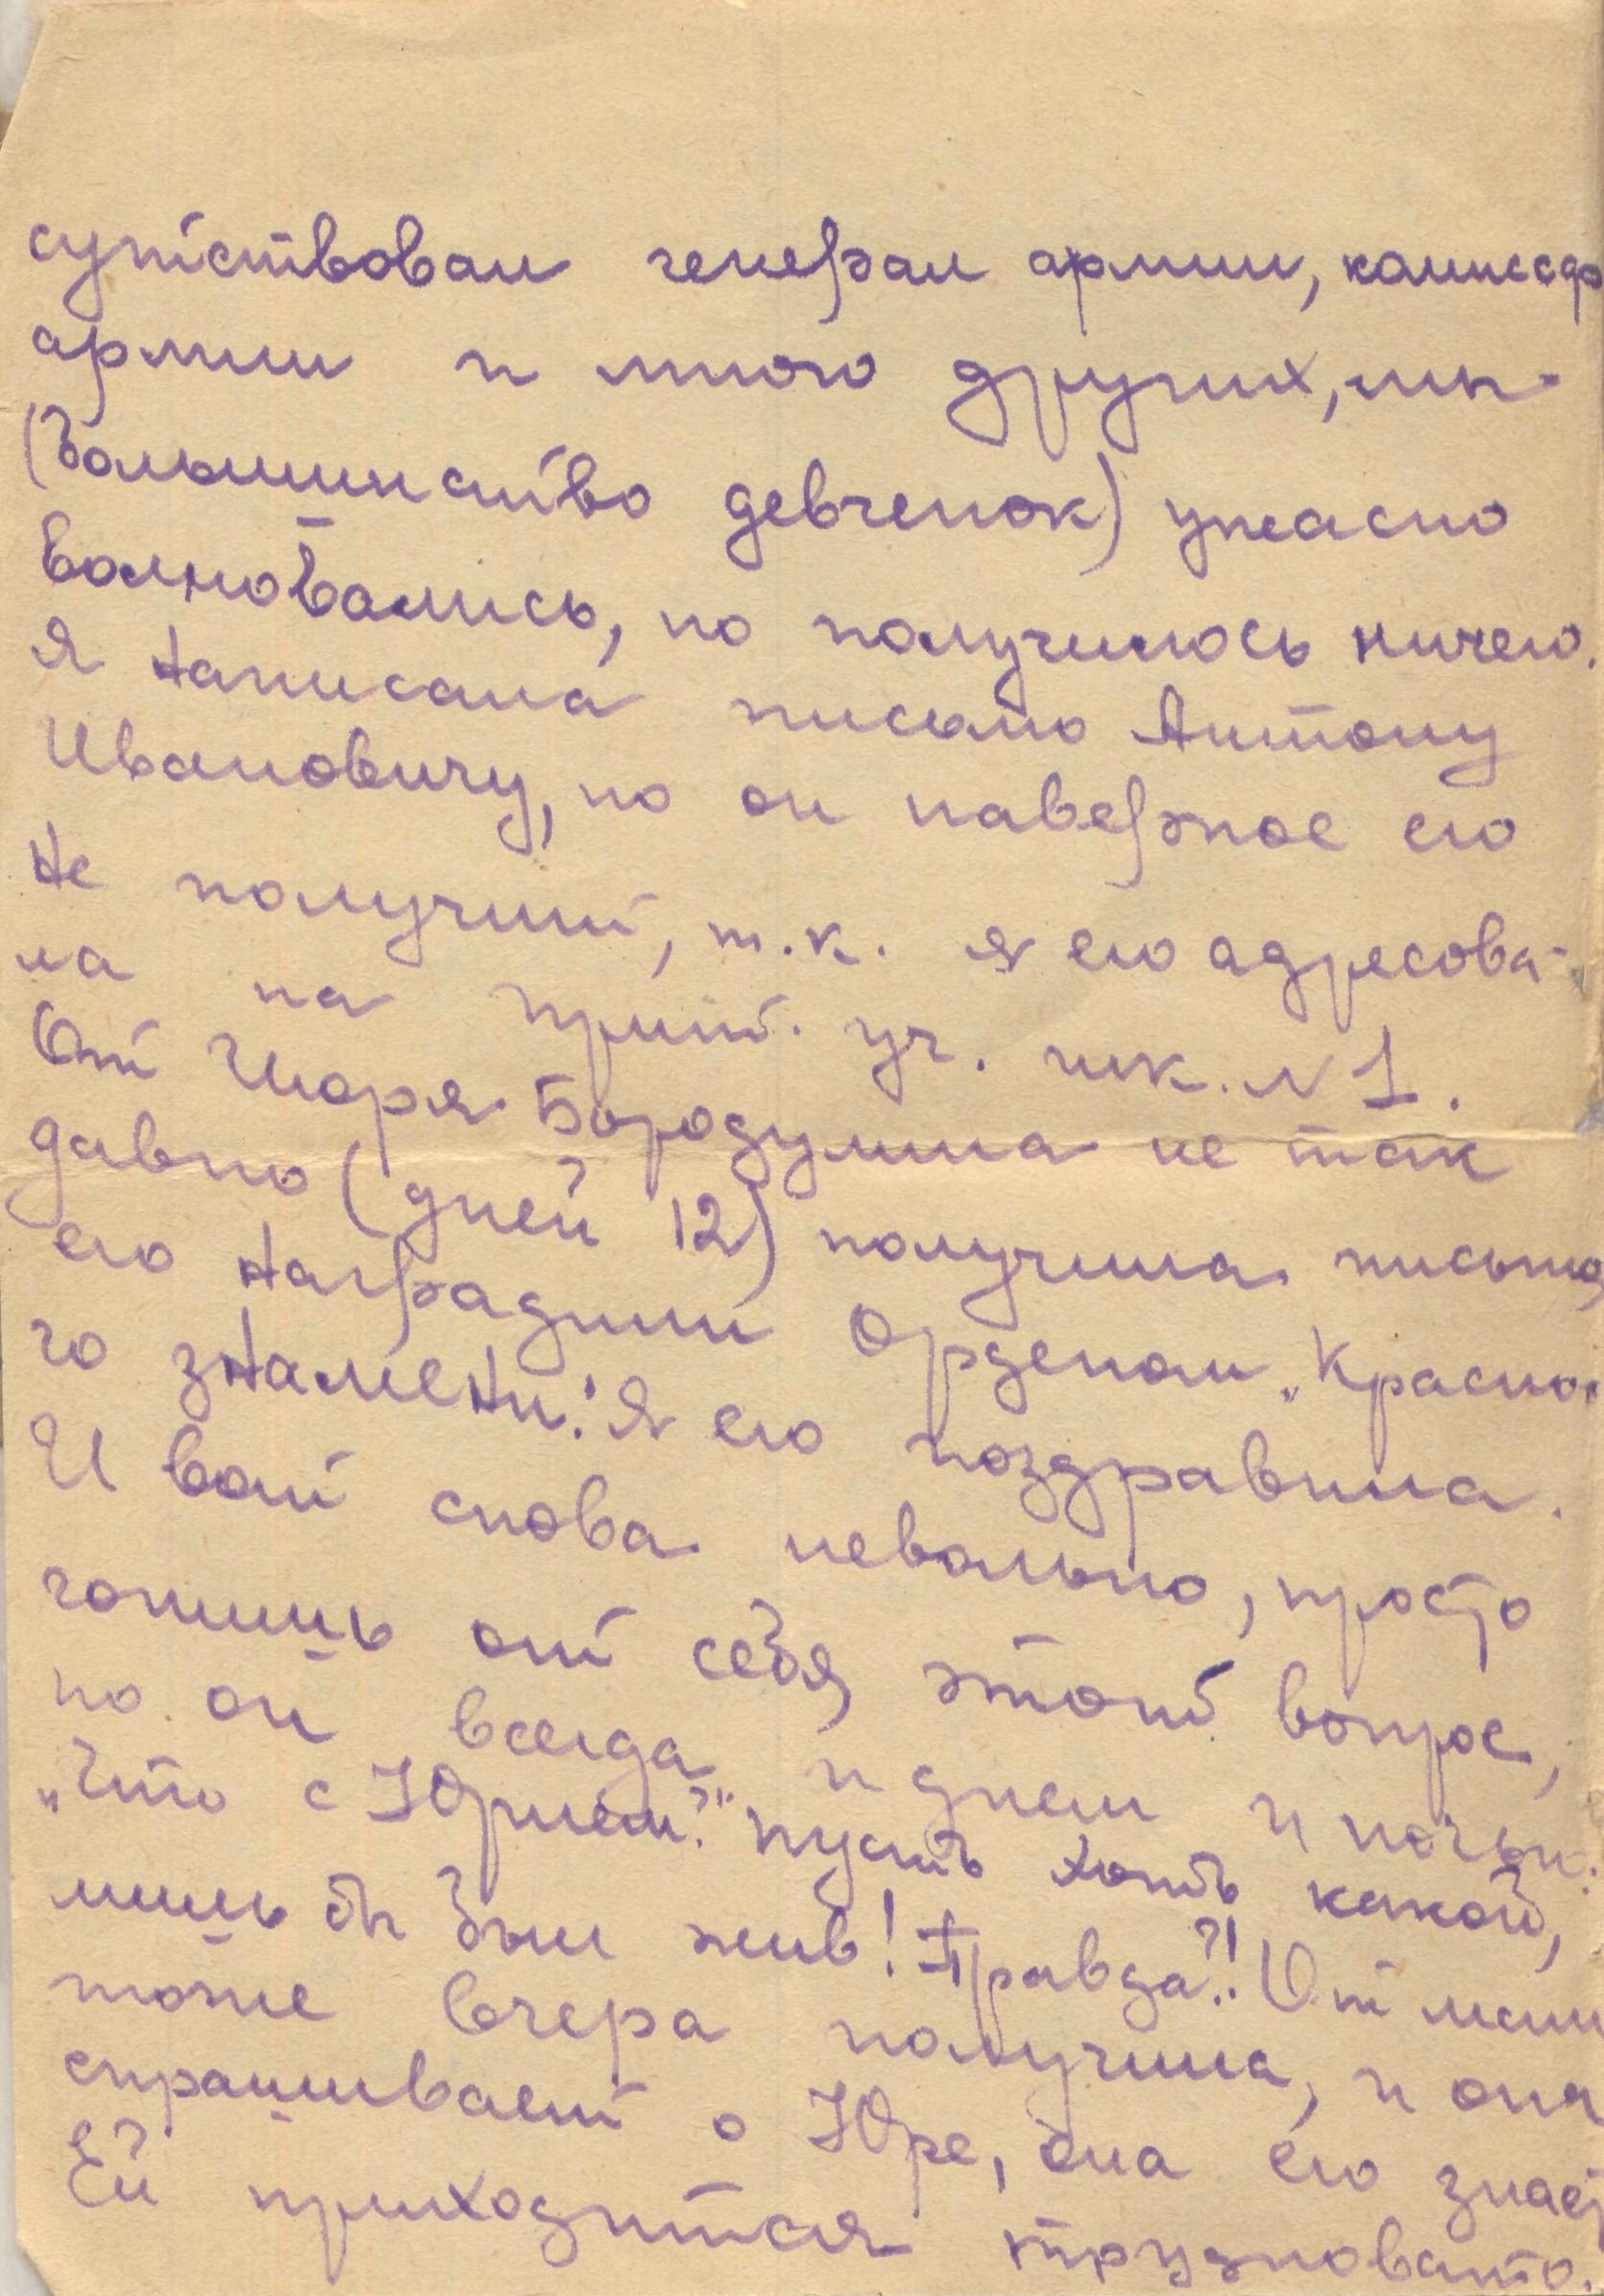 сутствовал генерал армии, комиссар
армии и много других, мы
(большинство девченок) ужасно
волновались, но получилось ничего.
Я написала письмо Антону
Ивановичу, но он наверное его
не получит, т.к. я его адресова-
ла на прит. уч. шк. N 1.
От Игоря Бородулина не так
давно (дней 12) получила письмо,
его наградили Орденом „Красно-
го знамени." Я его поздравила.
И вот снова невольно, просто
гонишь от себя этот вопрос,
но он всегда и днем и ночью:
„Что с Юрием?" пусть хоть какой,
лишь бы был жив! Правда?! От мамы
тоже вчера получила, и она
спрашивает о Юре, она его знает
Ей приходится трудновато.